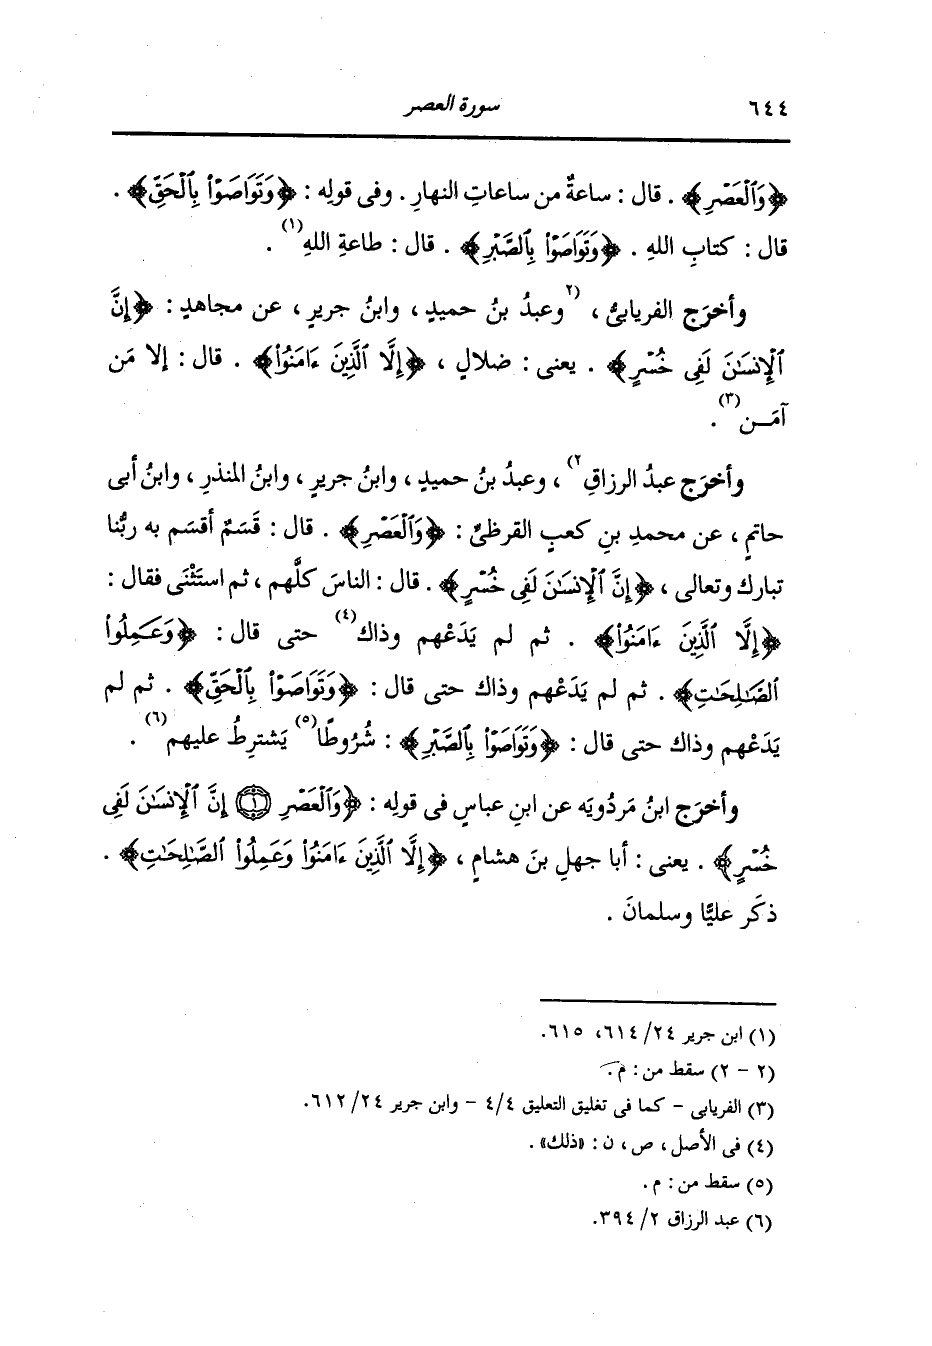 ٦٤٤ سورة العصر
﴿وَٱلْعَصْرِ﴾ . قال : ساعةٌ من ساعاتِ النهارِ . وفى قولِه : ﴿وَتَوَاصَوْا۟ بِٱلْحَقِّ﴾ .
قال : كتابِ اللهِ . ﴿وَتَوَاصَوْا۟ بِٱلصَّبْرِ﴾ . قال : طاعةِ اللهِ(١) .
وأخرَج الفريابىُّ ، (٢وعبدُ بنُ حميدٍ ، وابنُ جريرٍ ، عن مجاهدٍ : ﴿إِنَّ
ٱلْإِنسَٰنَ لَفِى خُسْرٍ﴾ . يعنى : ضلالٍ ، ﴿إِلَّا ٱلَّذِينَ ءَامَنُوا۟﴾ . قال : إلا مَن
آمَــن(٣) .
وأخرَج عبدُ الرزاقِ٢) ، وعبدُ بنُ حميدٍ ، وابنُ جريرٍ ، وابنُ المنذرِ ، وابنُ أبى
حاتمٍ ، عن محمدِ بنِ كعبٍ القرظىِّ : ﴿وَٱلْعَصْرِ﴾ . قال : قَسَمٌ أقسَم به ربُّنا
تبارك وتعالى ، ﴿إِنَّ ٱلْإِنسَٰنَ لَفِى خُسْرٍ﴾ . قال : الناسَ كلَّهم ، ثم استَثْنَى فقال :
﴿إِلَّا ٱلَّذِينَ ءَامَنُوا۟﴾ . ثم لم يَدَعْهم وذاك(٤) حتى قال : ﴿وَعَمِلُوا۟
ٱلصَّٰلِحَٰتِ﴾ . ثم لم يَدَعْهم وذاك حتى قال : ﴿وَتَوَاصَوْا۟ بِٱلْحَقِّ﴾ . ثم لم
يَدَعْهم وذاك حتى قال : ﴿وَتَوَاصَوْا۟ بِٱلصَّبْرِ﴾ : شُرُوطًا(٥) يَشترِطُ عليهم(٦) .
وأخرَج ابنُ مَردُويَه عن ابنِ عباسٍ فى قولِه : ﴿وَٱلْعَصْرِ ۝١ إِنَّ ٱلْإِنسَٰنَ لَفِى
خُسْرٍ﴾ . يعنى : أبا جهلِ بنَ هشامٍ ، ﴿إِلَّا ٱلَّذِينَ ءَامَنُوا۟ وَعَمِلُوا۟ ٱلصَّٰلِحَٰتِ﴾ .
ذكَر عليًّا وسلمانَ .
(١) ابن جرير ٢٤/ ٦١٤، ٦١٥.
(٢ - ٢) سقط من : م .
(٣) الفريابى - كما فى تغليق التعليق ٤/ ٤ - وابن جرير ٢٤/ ٦١٢.
(٤) فى الأصل ، ص ، ن : «ذلك» .
(٥) سقط من : م .
(٦) عبد الرزاق ٢/ ٣٩٤.